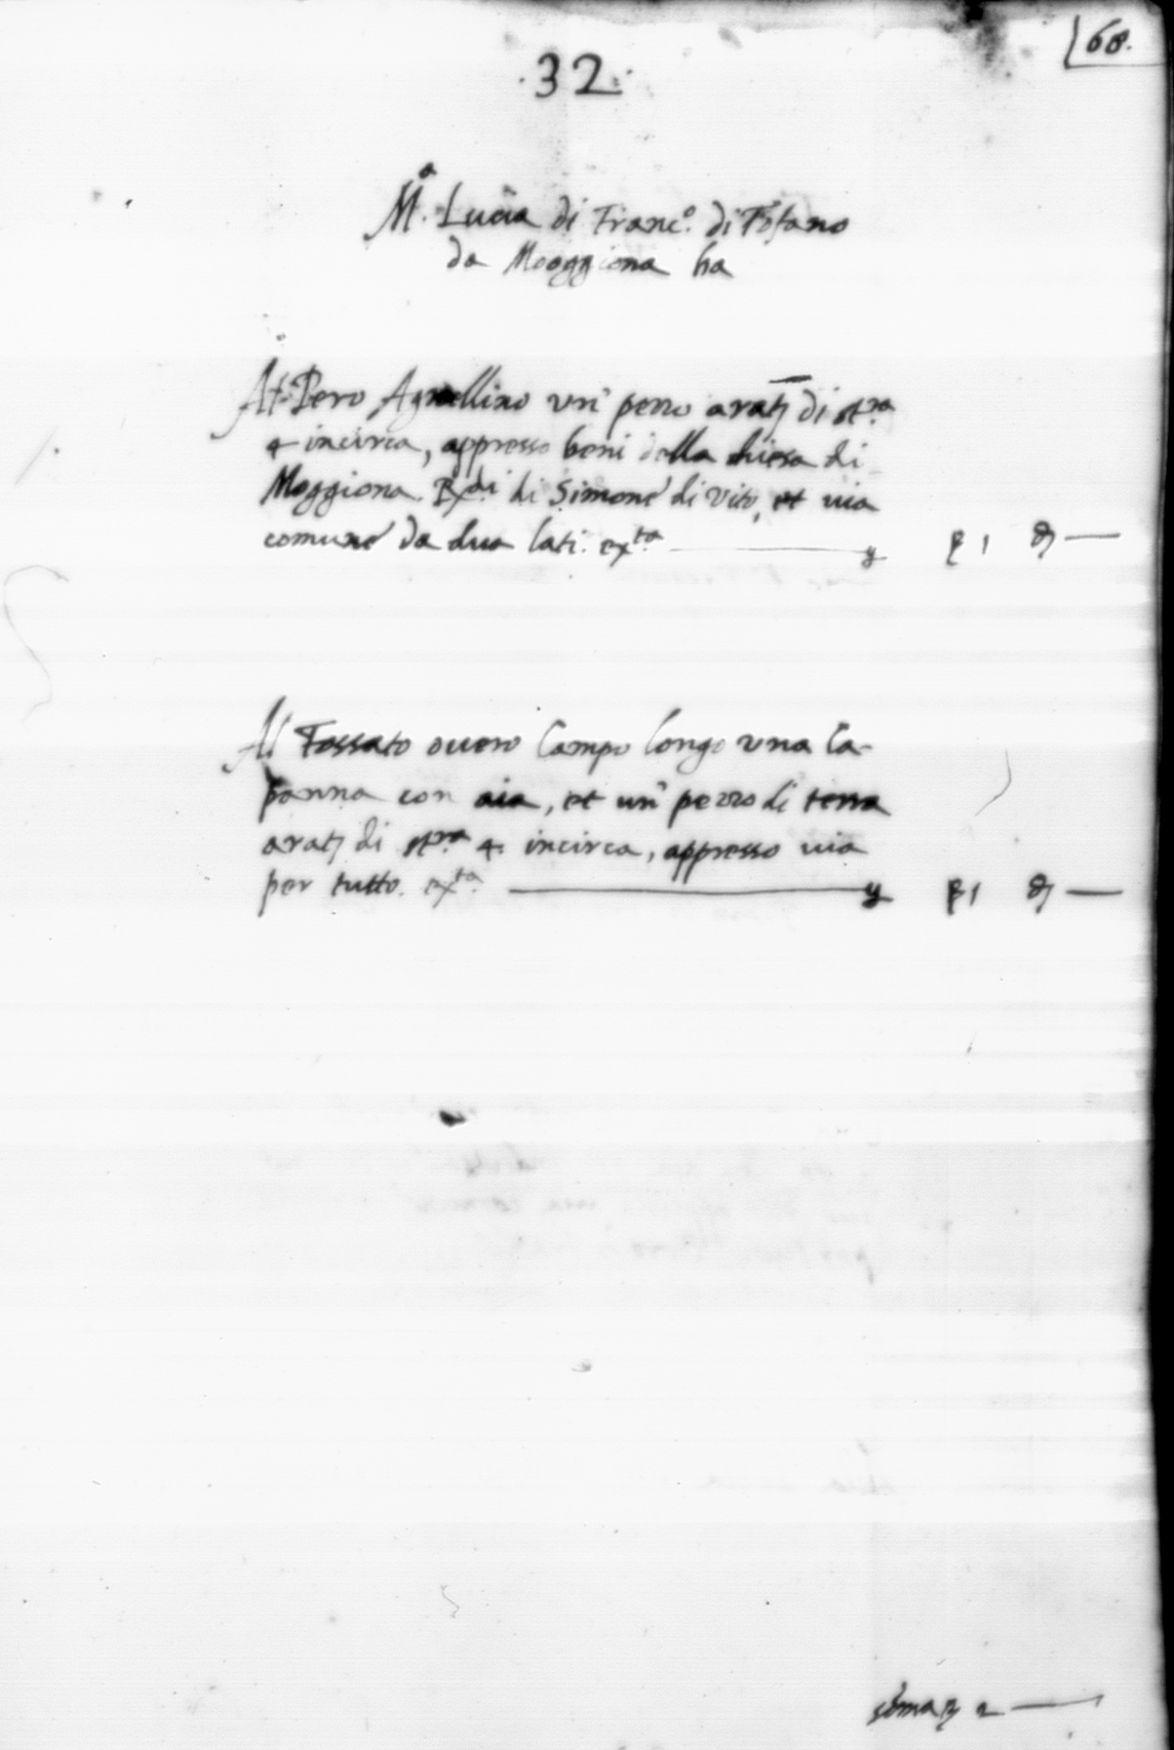 68.
.32.
M.ª Lucia di Franc.º di Tofano
da Moggiona ha
Al Pero Agnellino un' pezzo arat di st.ra
4 incirca, appresso beni della chiesa di
Moggiona. Rxdi di Simone di Vito, et via
comune da dua lati. exta.
Al Fossato overo Campo longo una Ca-
panna con aia, et un' pezzo di terra
arat di st.ra 4. incirca, appresso via
per tutto. exta.
soma 2 —